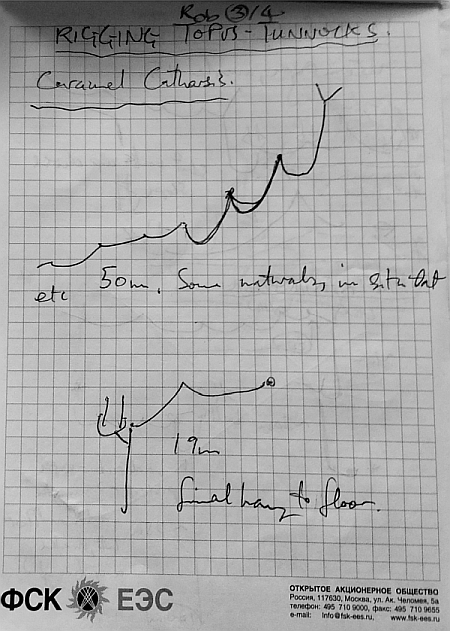 Rob ③/4
RIGGING TOPOS - TUNNOCKS.
Caramel Catharsis.
etc
50m. Some naturals, in situ
19m
final hang to floor.
ФСК ЕЭС
ОТКРЫТОЕ АКЦИОНЕРНОЕ ОБЩЕСТВО
Россия, 117630, Москва, ул. Ак. Челомея, 5а
телефон: 495 710 9000, факс: 495 710 9655
e-mail: info@fsk-ees.ru, www.fsk-ees.ru